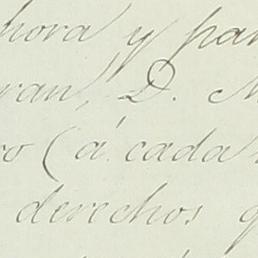 hora y par
ran, D. M
ro (á cada
derechos q